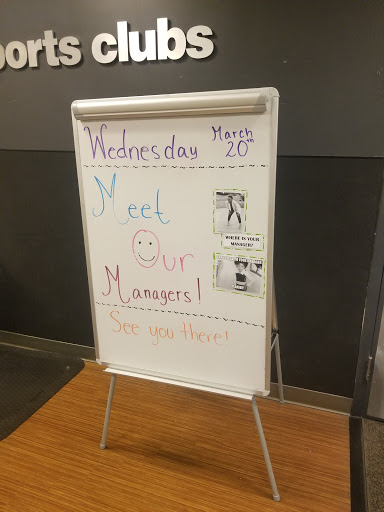 ports clubs
Wednesday March 20th
Meet
Our
Managers!
WHERE IS YOUR
MANAGER?
See you there!